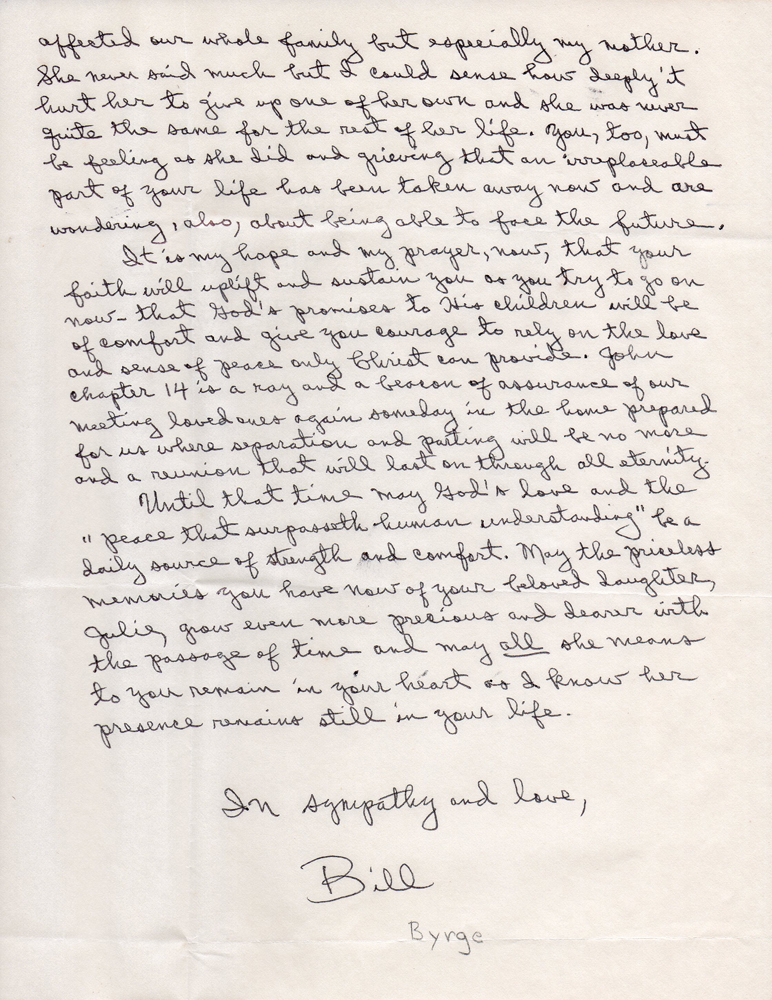 affected our whole family but especially my mother.
She never said much but I could sense how deeply it
hurt her to give up one of her own and she was never
quite the same for the rest of her life. You, too, must
be feeling as she did and grieving that an irreplaceable
part of your life has been taken away now and are
wondering, also, about being able to face the future.
It is my hope and my prayer, now, that your
faith will uplift and sustain you as you try to go on
now- that God's promises to His children will be
of comfort and give you courage to rely on the love
and sense of peace only Christ can provide. John
chapter 14 is a ray and a beacon of assurance of our
meeting loved ones again someday in the home prepared
for us where separation and parting will be no more
and a reunion that will last on through all eternity.
Until that time may God's love and the
"peace that surpasseth human understanding" be a
daily source of strength and comfort. May the priceless
memories you have now of your beloved daughter,
Julie, grow even more precious and dearer with
the passage of time and may all she means
to you remain in your heart as I know her
presence remains still in your life.
In sympathy and love,
Bill
Byrge